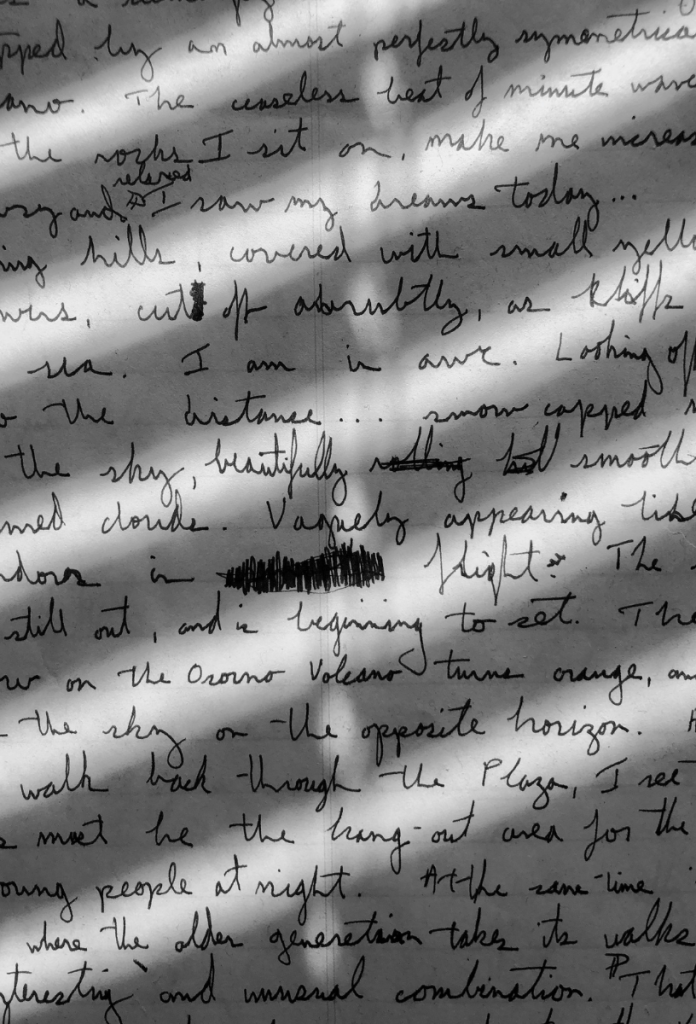 pped by an almost perfectly symmetrica
ano. The ceaseless beat of minute wav
the rocks I sit on, make me increas
relaxed
wsy and I saw my dreams today...
ing hills, covered with small yello
wers, cut off abrubtly, as kliffs
sea. I am in awe. Looking off
o the distance.... snow capped
the sky, beautifully rolling smooth
med clouds. Vaguely appearing like
ndors in flight. The
still out, and is beginning to set. The
ow on the Osorno Volcano turns orange, an
the sky on the opposite horizon. A
walk back through the Plaza, I see
s must be the hang-out area for the
oung people at night. At the same time
where the older generation takes its walks
teresting and unusual combination. That